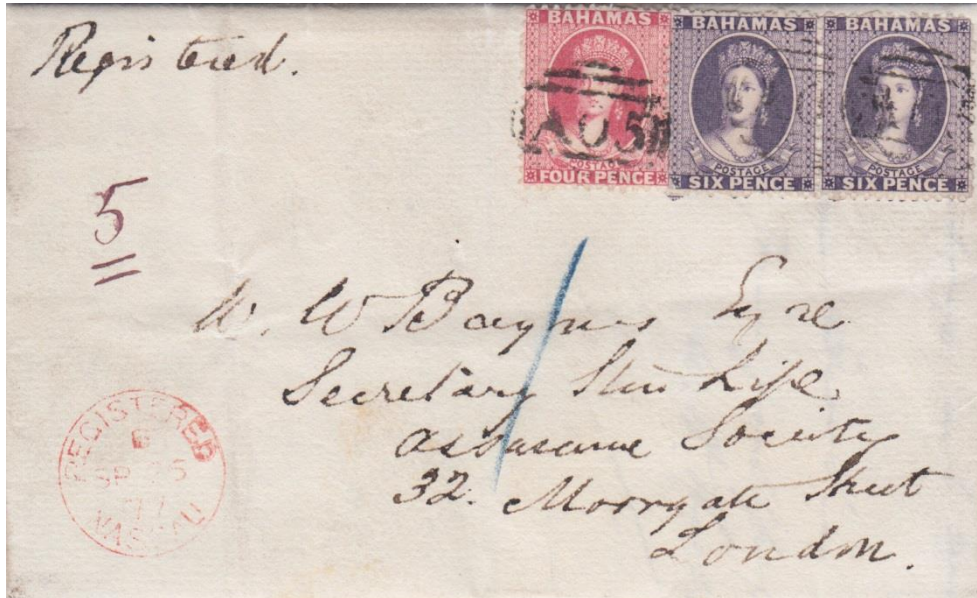 Registered.
BAHAMAS
POSTAGE
FOUR PENCE
A05
BAHAMAS
POSTAGE
SIX PENCE
BAHAMAS
POSTAGE
SIX PENCE
5
W. W Baynes Esqre
Secretary Star Life
assurance Society
32. Moorgate Street
London.
REGISTERED
B
SP 25
77
NASSAU